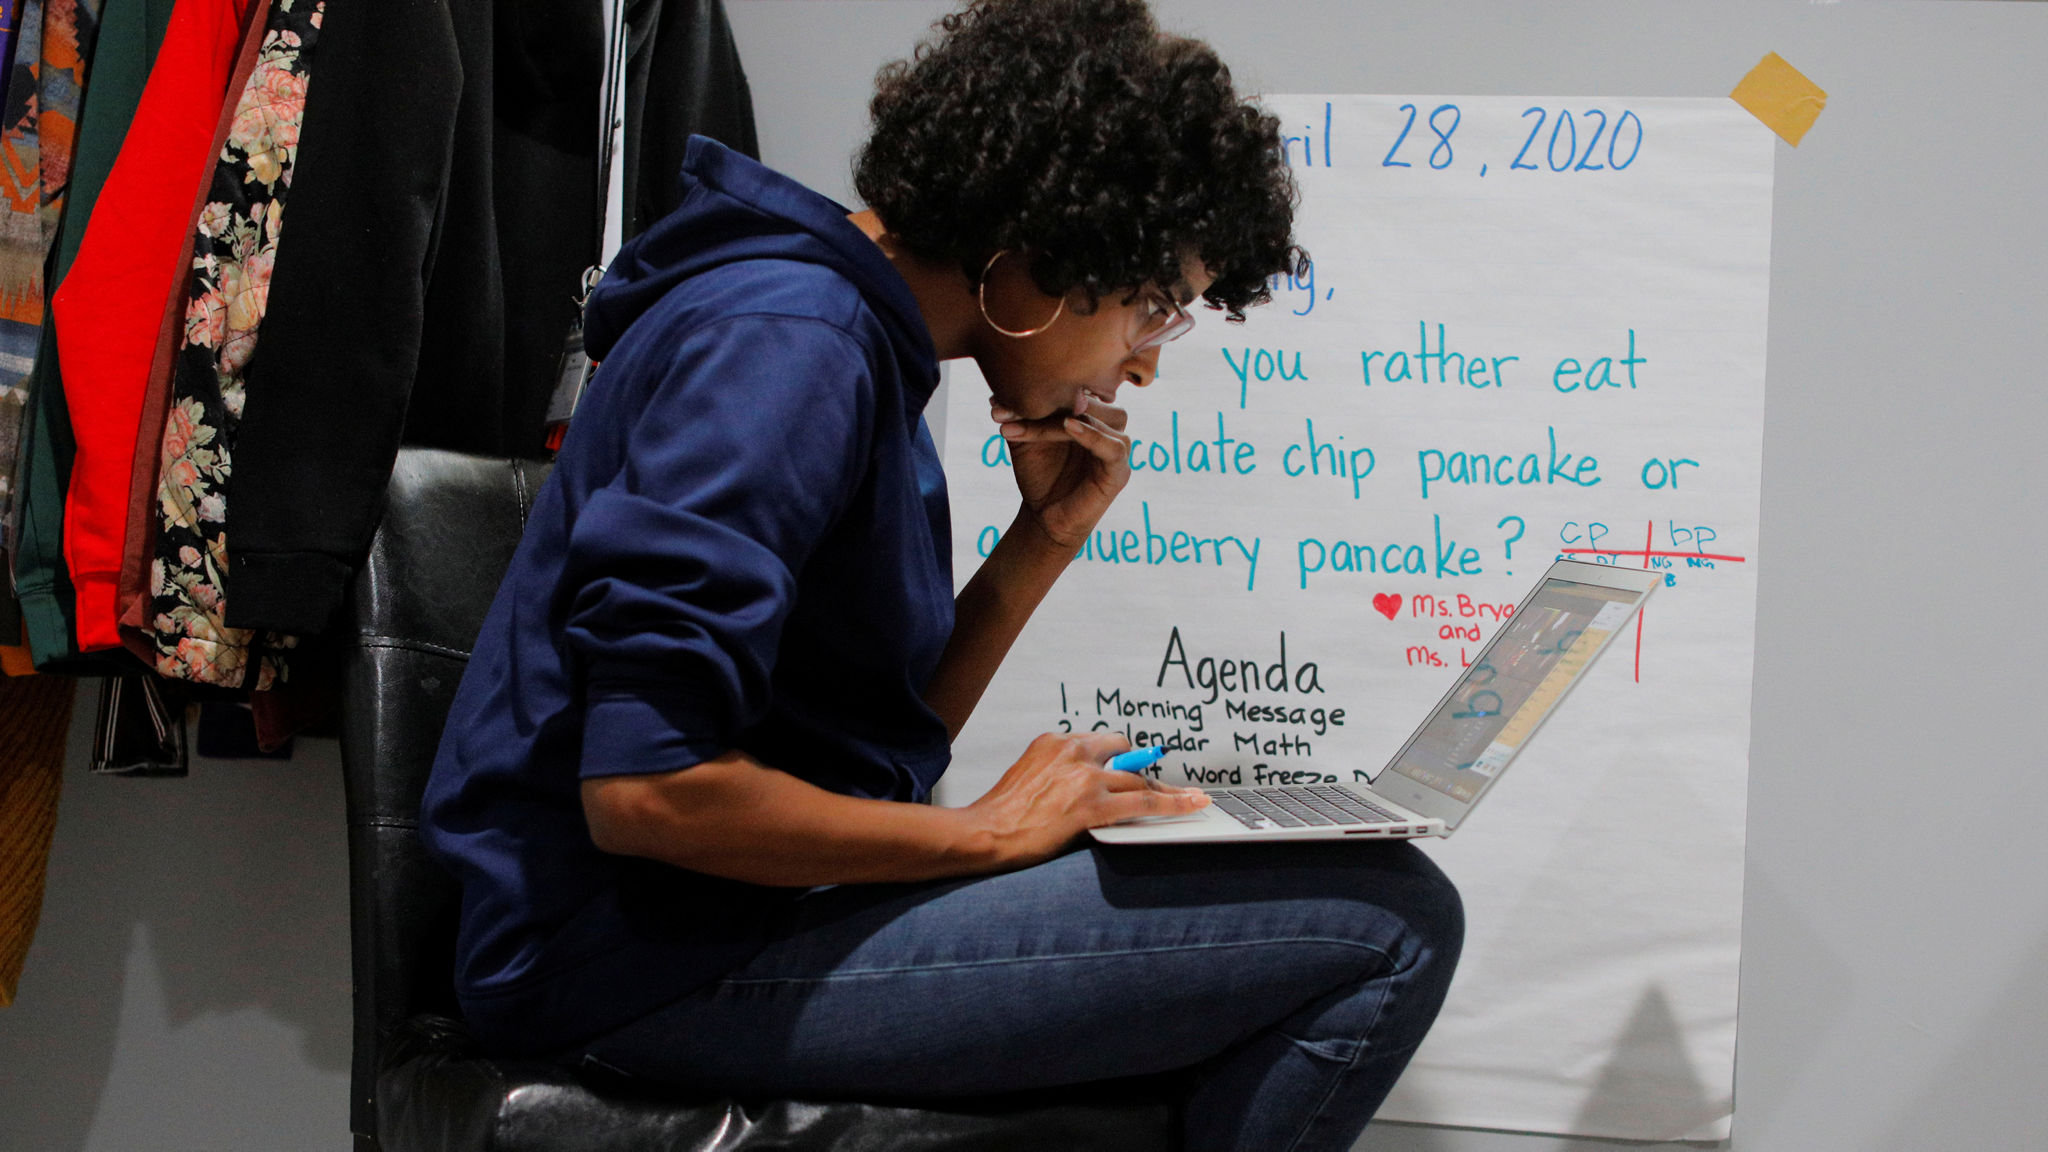 ril 28, 2020
ng,
you rather eat
a colate chip pancake or
a lueberry pancake?
cp bp
NG NG
♥ Ms. Brya
and
Ms. L
Agenda
1. Morning Message
2. Calendar Math
Word Freeze D